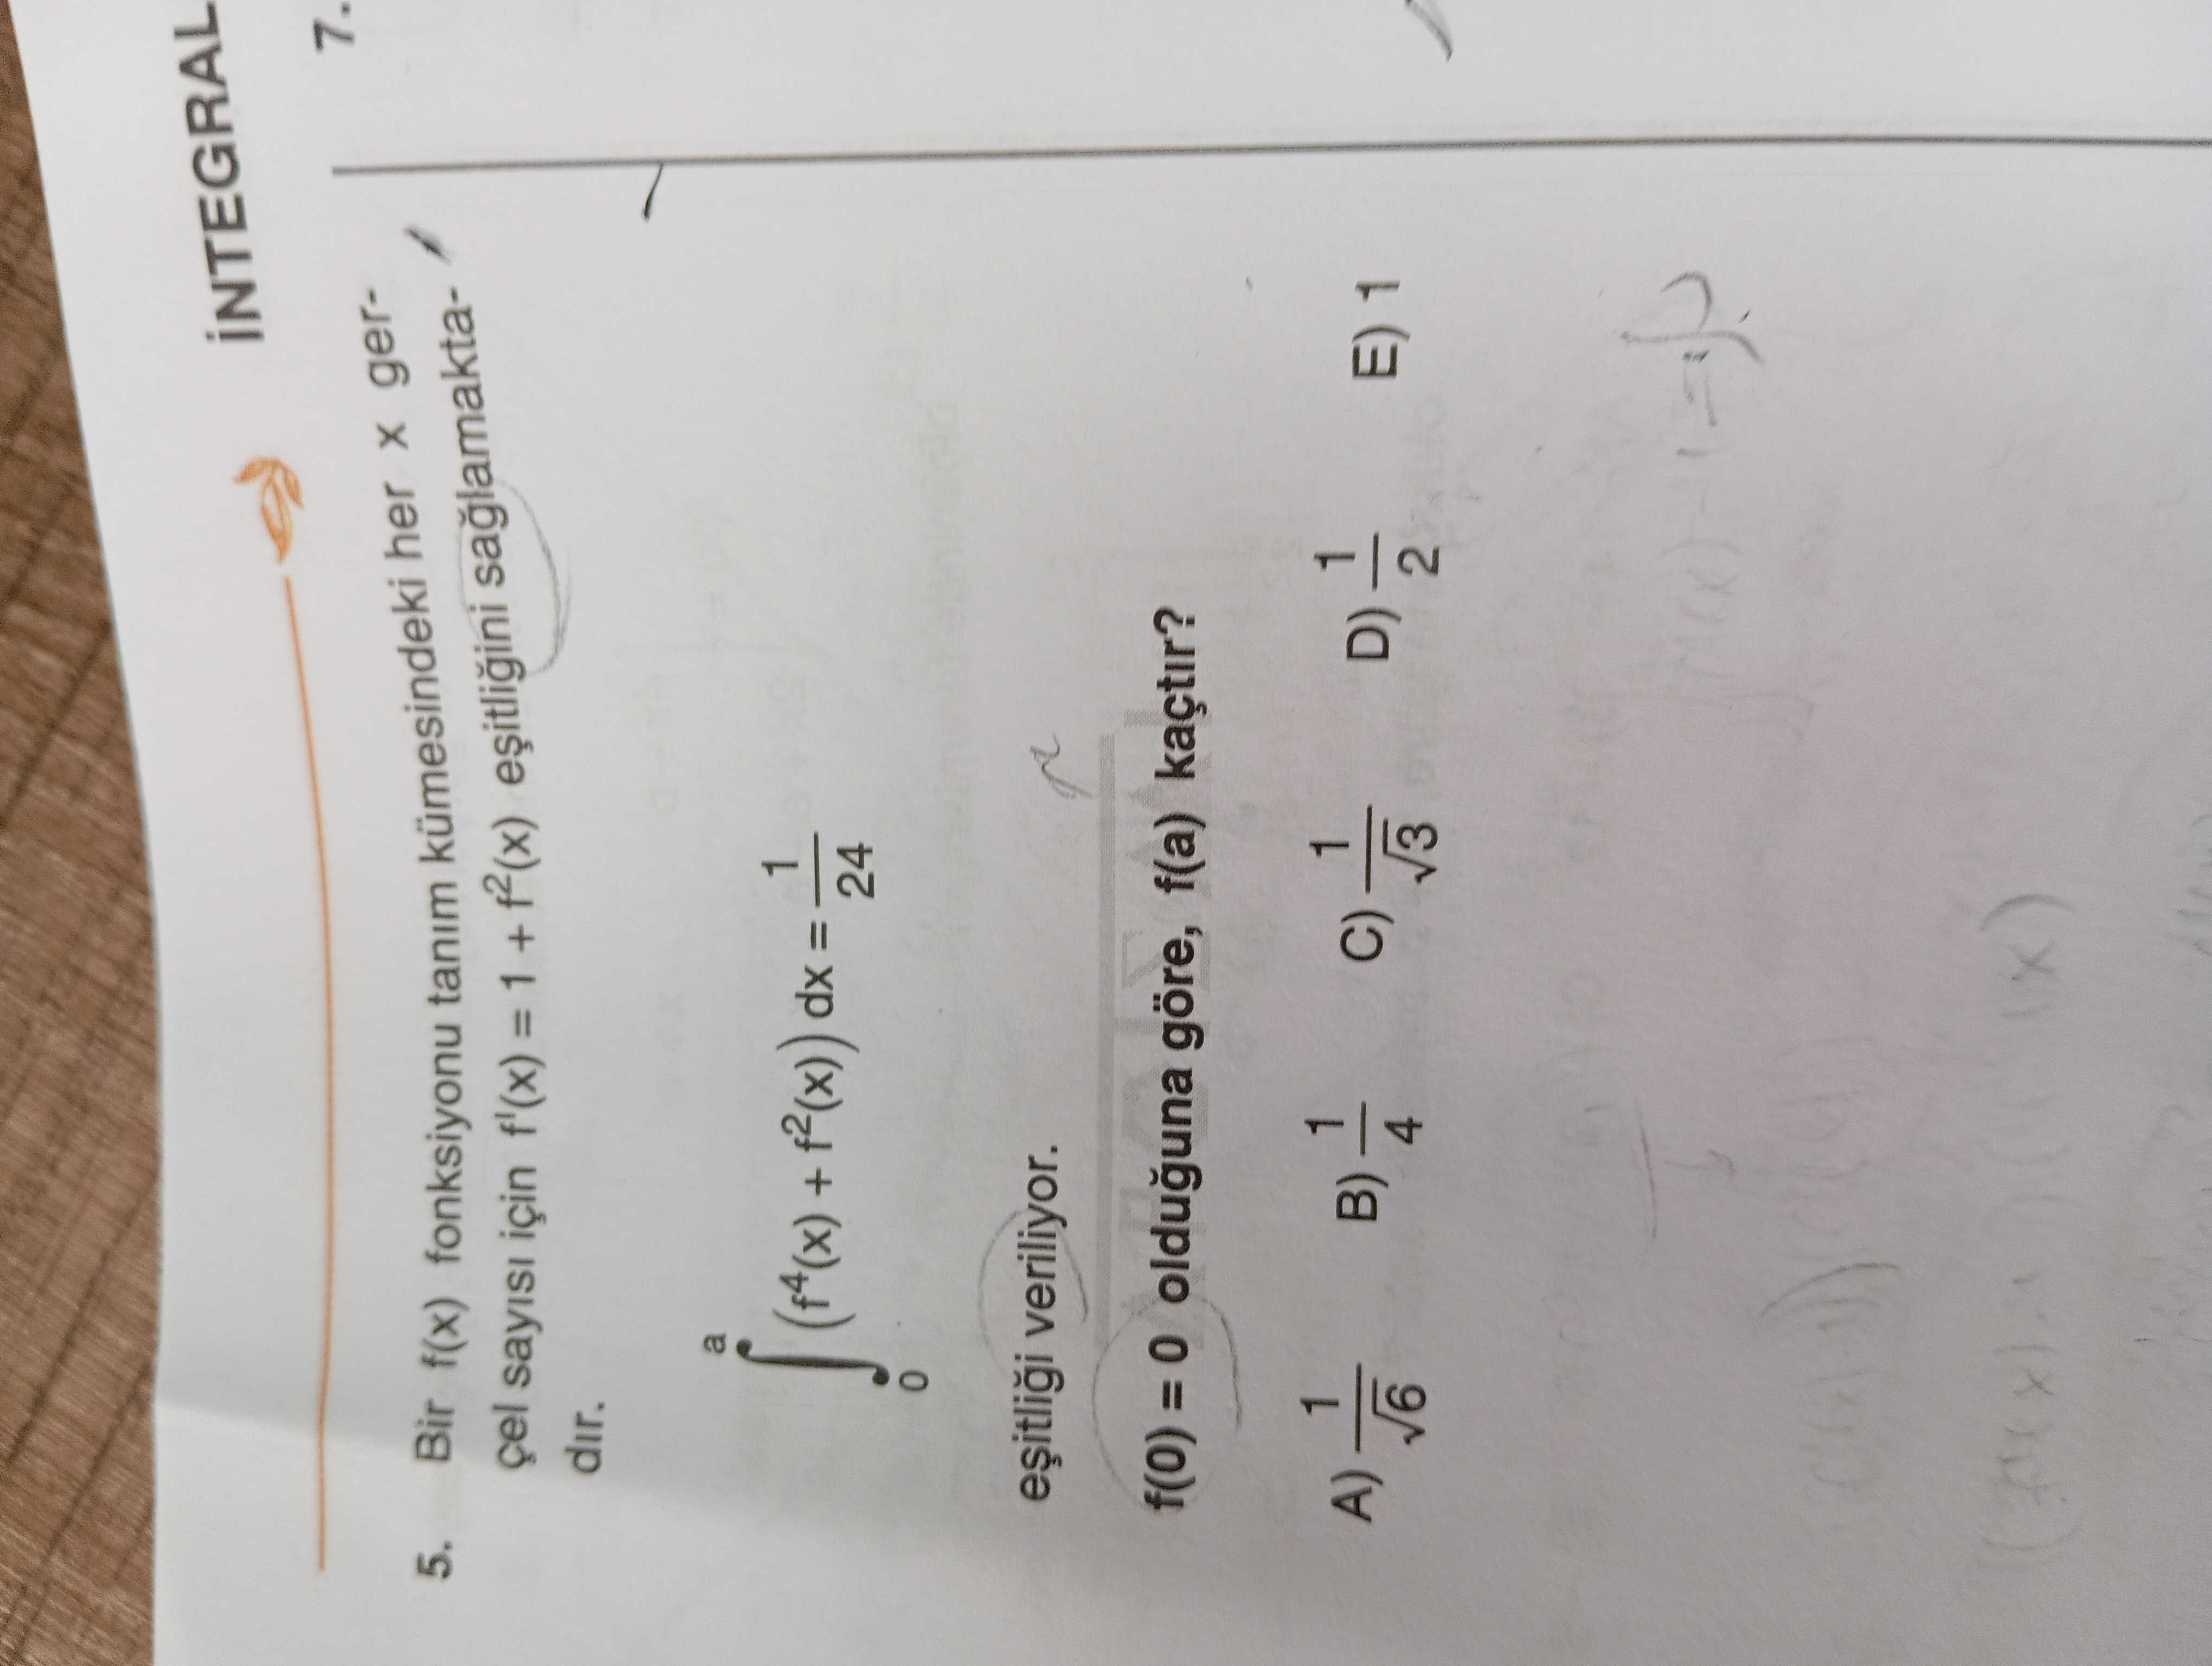 İNTEGRAL
5. Bir f(x) fonksiyonu tanım kümesindeki her x ger-
çel sayısı için f'(x) = 1 + f²(x) eşitliğini sağlamakta-
dır.
∫₀ᵃ (f⁴(x) + f²(x)) dx = 1/24
eşitliği veriliyor.
f(0) = 0 olduğuna göre, f(a) kaçtır?
A) 1/√6 B) 1/4 C) 1/√3 D) 1/2 E) 1
7.